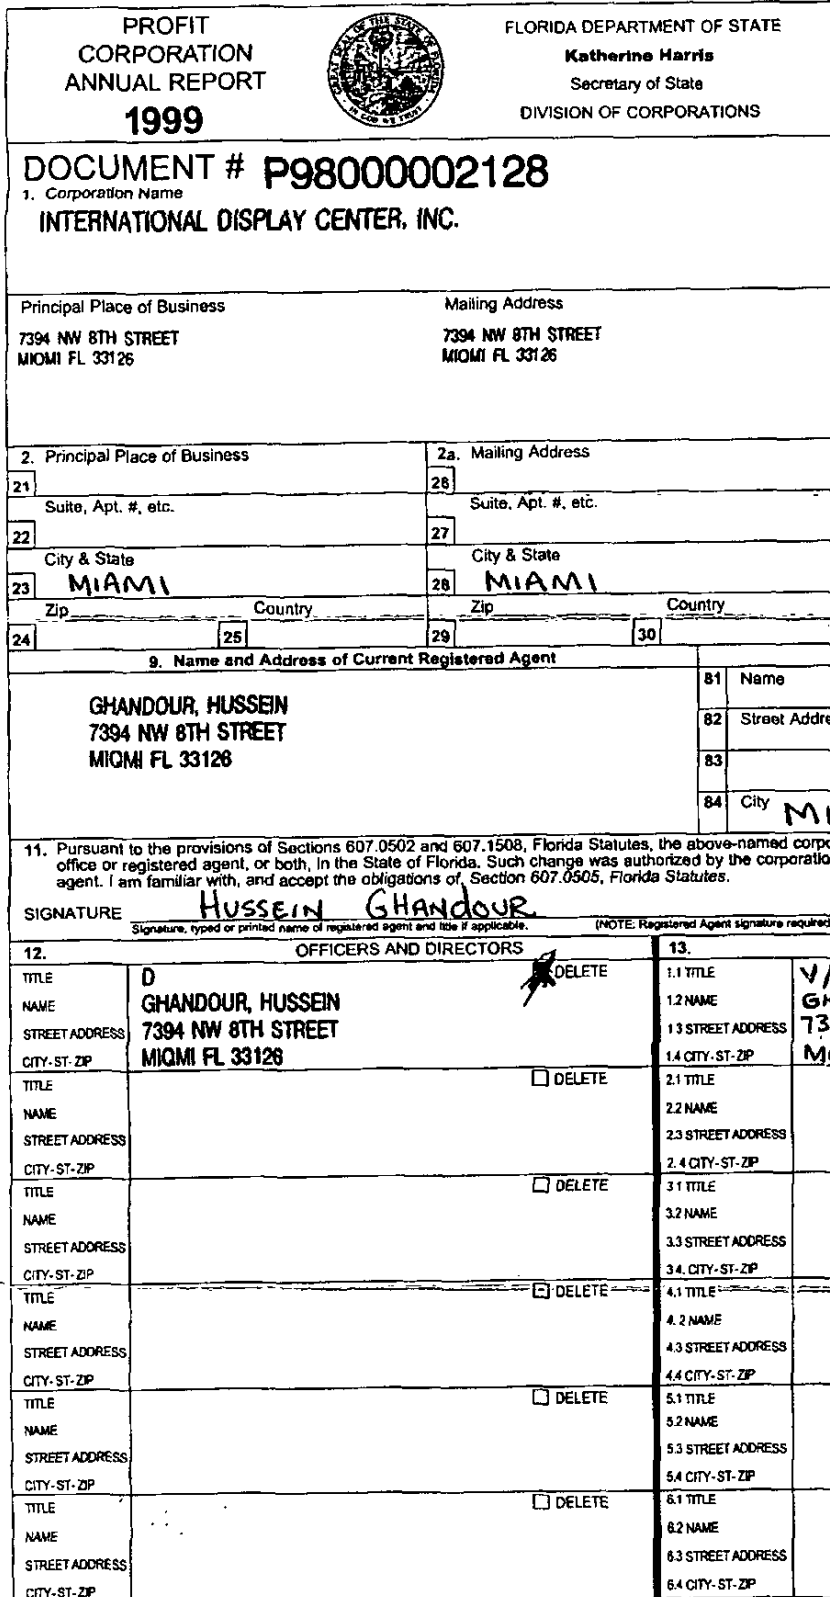 PROFIT
CORPORATION
ANNUAL REPORT
1999
GREAT SEAL OF THE STATE OF FLORIDA
IN GOD WE TRUST
FLORIDA DEPARTMENT OF STATE
Katherine Harris
Secretary of State
DIVISION OF CORPORATIONS
DOCUMENT # P98000002128
1. Corporation Name
INTERNATIONAL DISPLAY CENTER, INC.
Principal Place of Business
7394 NW 8TH STREET
MIOMI FL 33126
Mailing Address
7394 NW 8TH STREET
MIOMI FL 33126
2. Principal Place of Business
21
Suite, Apt. #, etc.
22
City & State
23 MIAMI
Zip Country
24 25
2a. Mailing Address
26
Suite, Apt. #, etc.
27
City & State
28 MIAMI
Zip Country
29 30
9. Name and Address of Current Registered Agent
GHANDOUR, HUSSEIN
7394 NW 8TH STREET
MIOMI FL 33126
81 Name
82 Street Addre
83
84 City MI
11. Pursuant to the provisions of Sections 607.0502 and 607.1508, Florida Statutes, the above-named corpo
office or registered agent, or both, in the State of Florida. Such change was authorized by the corporatio
agent. I am familiar with, and accept the obligations of, Section 607.0505, Florida Statutes.
SIGNATURE HUSSEIN GHANDOUR
Signature, typed or printed name of registered agent and title if applicable. (NOTE: Registered Agent signature required
12. OFFICERS AND DIRECTORS
TITLE D DELETE
NAME GHANDOUR, HUSSEIN
STREET ADDRESS 7394 NW 8TH STREET
CITY-ST-ZIP MIOMI FL 33126
TITLE DELETE
NAME
STREET ADDRESS
CITY-ST-ZIP
TITLE DELETE
NAME
STREET ADDRESS
CITY-ST-ZIP
TITLE DELETE
NAME
STREET ADDRESS
CITY-ST-ZIP
TITLE DELETE
NAME
STREET ADDRESS
CITY-ST-ZIP
TITLE DELETE
NAME
STREET ADDRESS
CITY-ST-ZIP
13.
1.1 TITLE V/
1.2 NAME GH
1 3 STREET ADDRESS 73
1.4 CITY-ST-ZIP Mi
2.1 TITLE
2.2 NAME
2.3 STREET ADDRESS
2. 4 CITY-ST-ZIP
3 1 TITLE
3.2 NAME
3.3 STREET ADDRESS
3 4. CITY-ST-ZIP
4.1 TITLE
4. 2 NAME
4.3 STREET ADDRESS
4.4 CITY-ST-ZIP
5.1 TITLE
5.2 NAME
5.3 STREET ADDRESS
5.4 CITY-ST-ZIP
6.1 TITLE
6.2 NAME
6.3 STREET ADDRESS
6.4 CITY-ST-ZIP